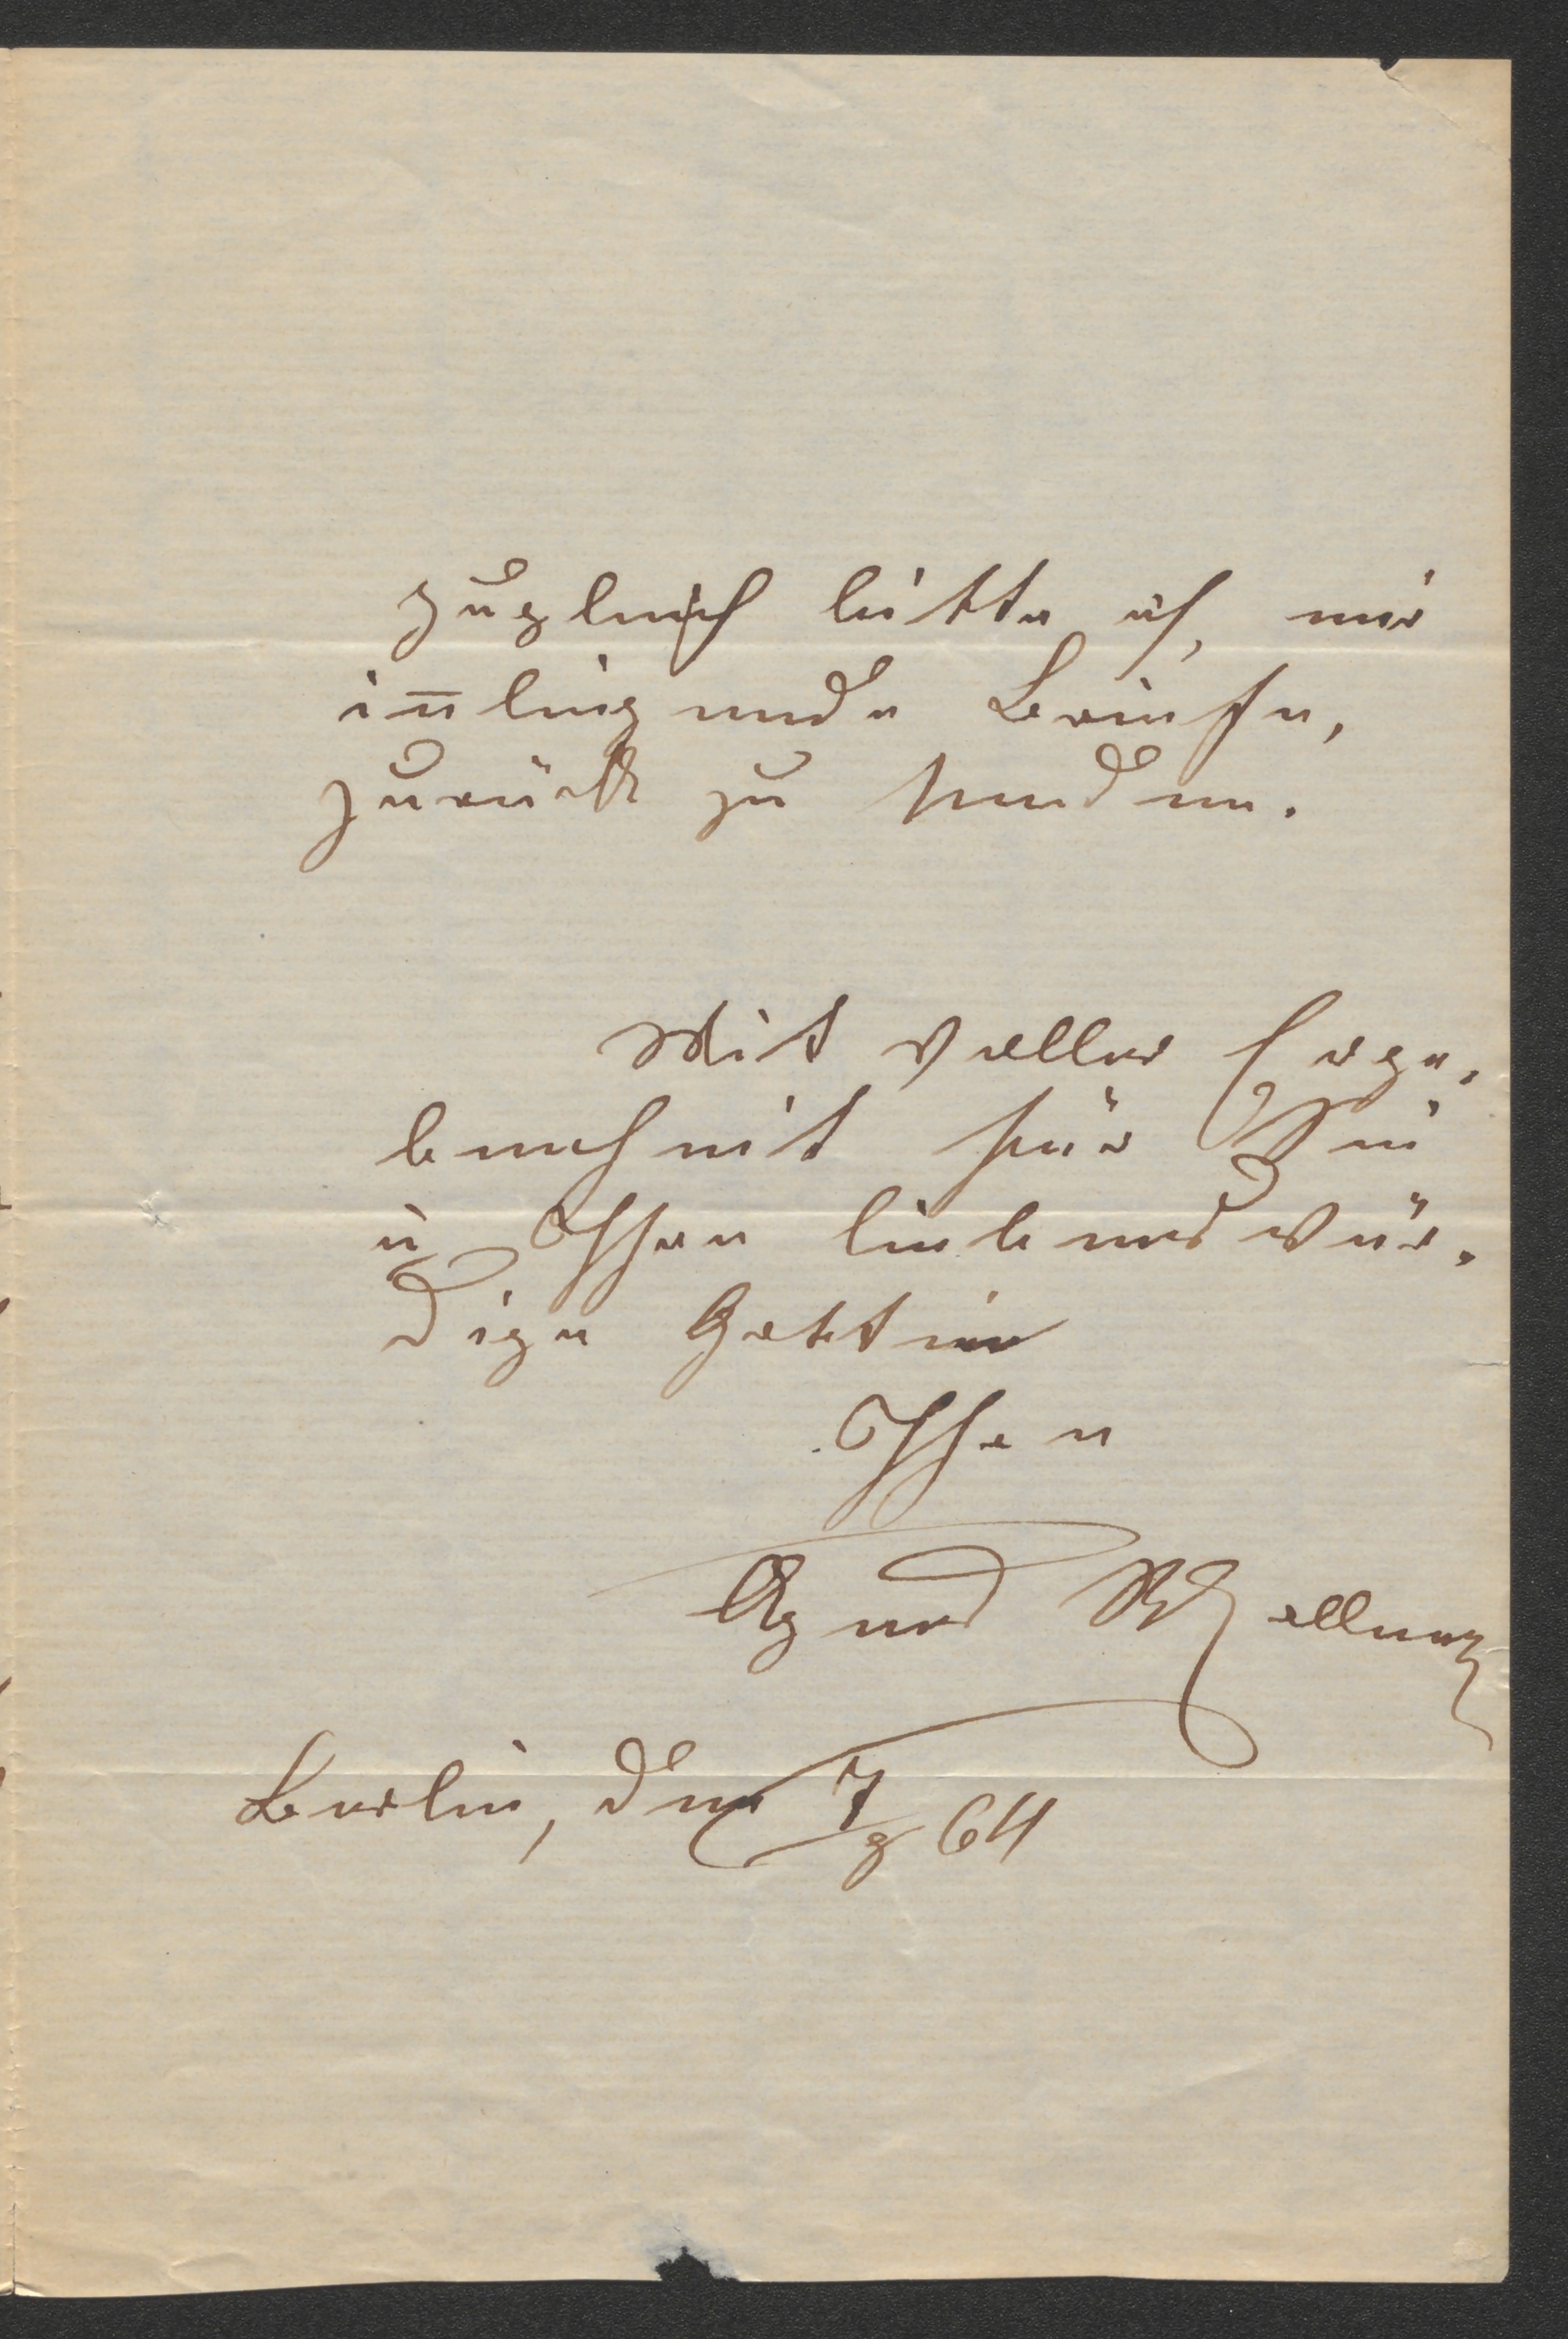 Zugleich bitte ich, mir
inliegende Briefe,
zurück zu senden.
Mit voller Erge-
benheit für Sie
u Ihre liebenswür-
dige Gattin
Ihre
Agnes Wallner
Berlin, den 7/9 64